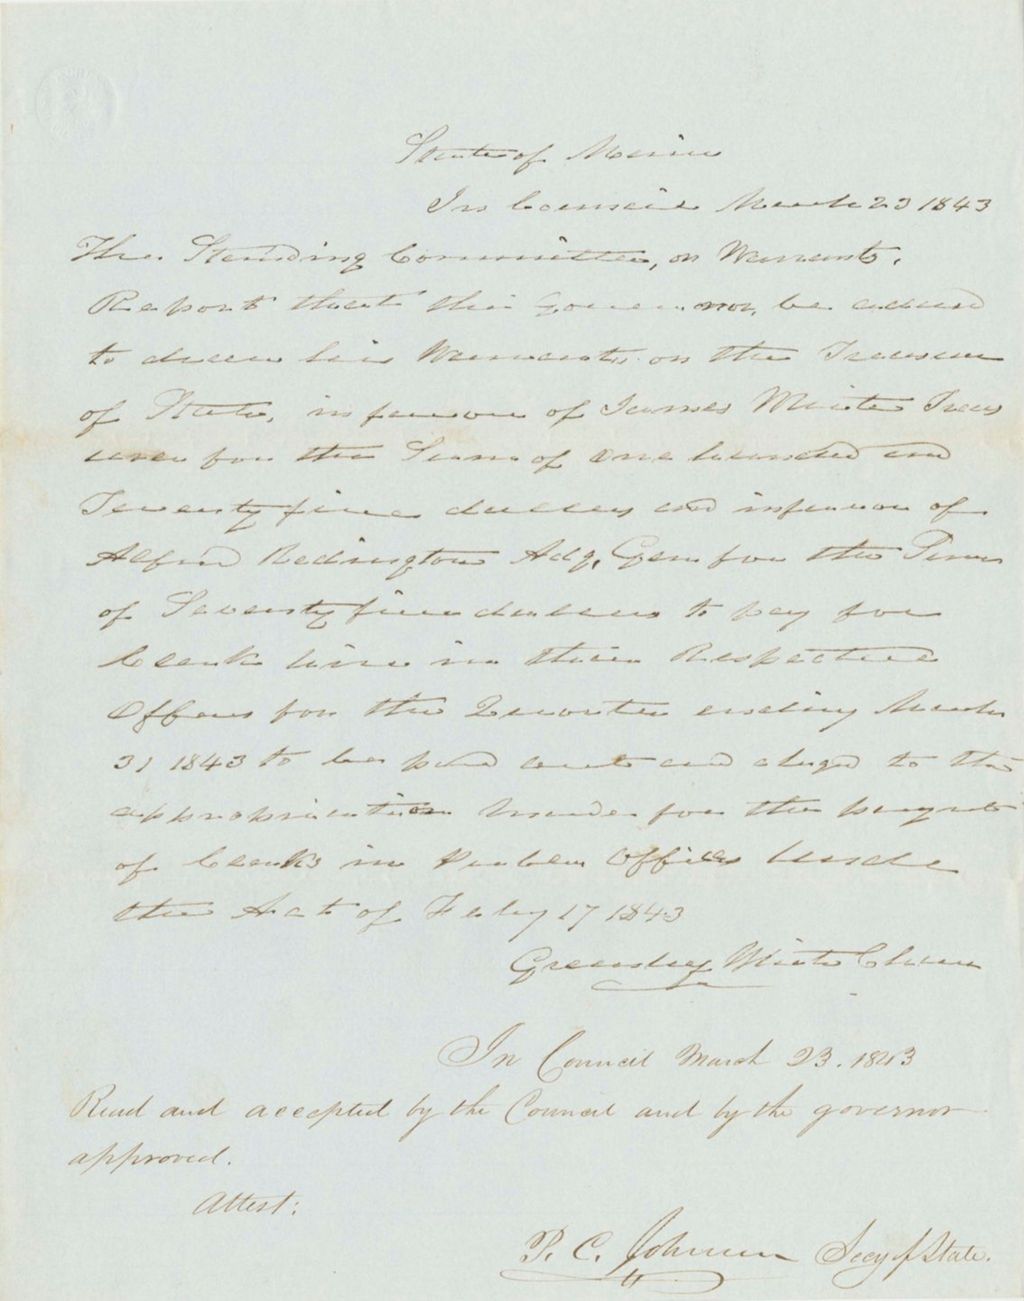 State of Maine
In Council March 23 1843
The Standing Committee, on Warrants,
Report that the Governor, be advised
to draw his Warrants on the Treasurer
of State, in favour of James White Treas
urer for the Sum of One hundred and
Twenty five dollars and in favour of
Alfred Redington Adg, Gen for the Sum
of Seventy five dollars to pay for
Clerk hire in their Respective
Offices for the Quarter ending March
31 1843 to be paid out and chargd to the
appropriation made for the paymt
of Clerks in Public Offices Under
the Act of Feby 17 1843
White Chairman
In Council March 23. 1843
Read and accepted by the Council and by the governor
approved.
Attest:
P. C. Johnson Secy of State.